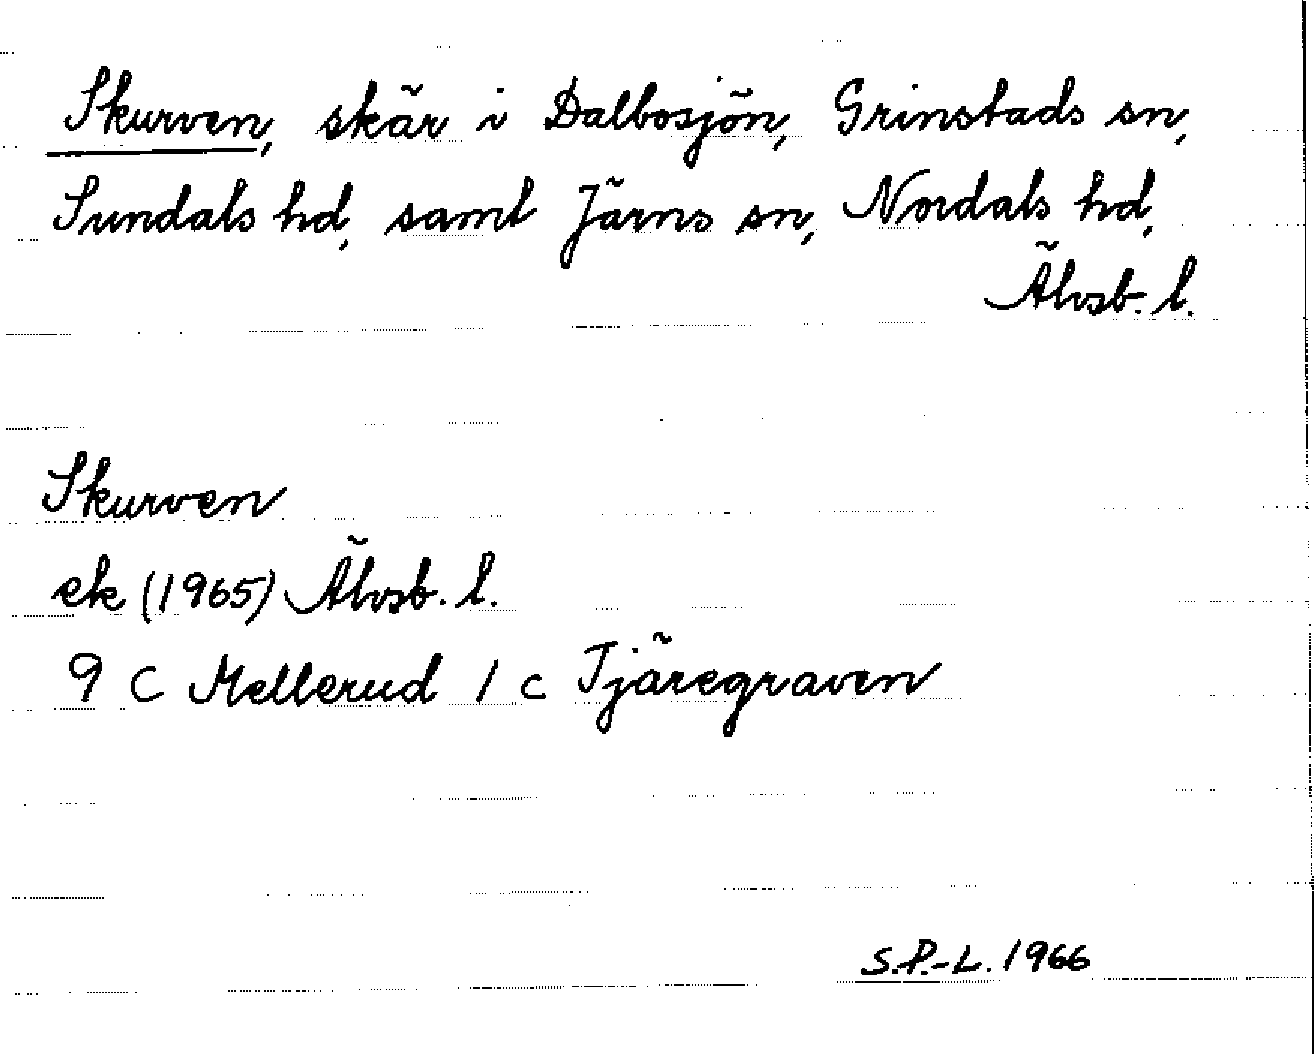 Skurven, skär i Dalbosjön, Grinstads sn,
Sundals hd, samt Järns sn, Nordals hd,
Älvsb. l.
Skurven
ek (1965) Älvsb. l.
9 C Mellerud 1 c Tjäregraven
S.P.-L. 1966